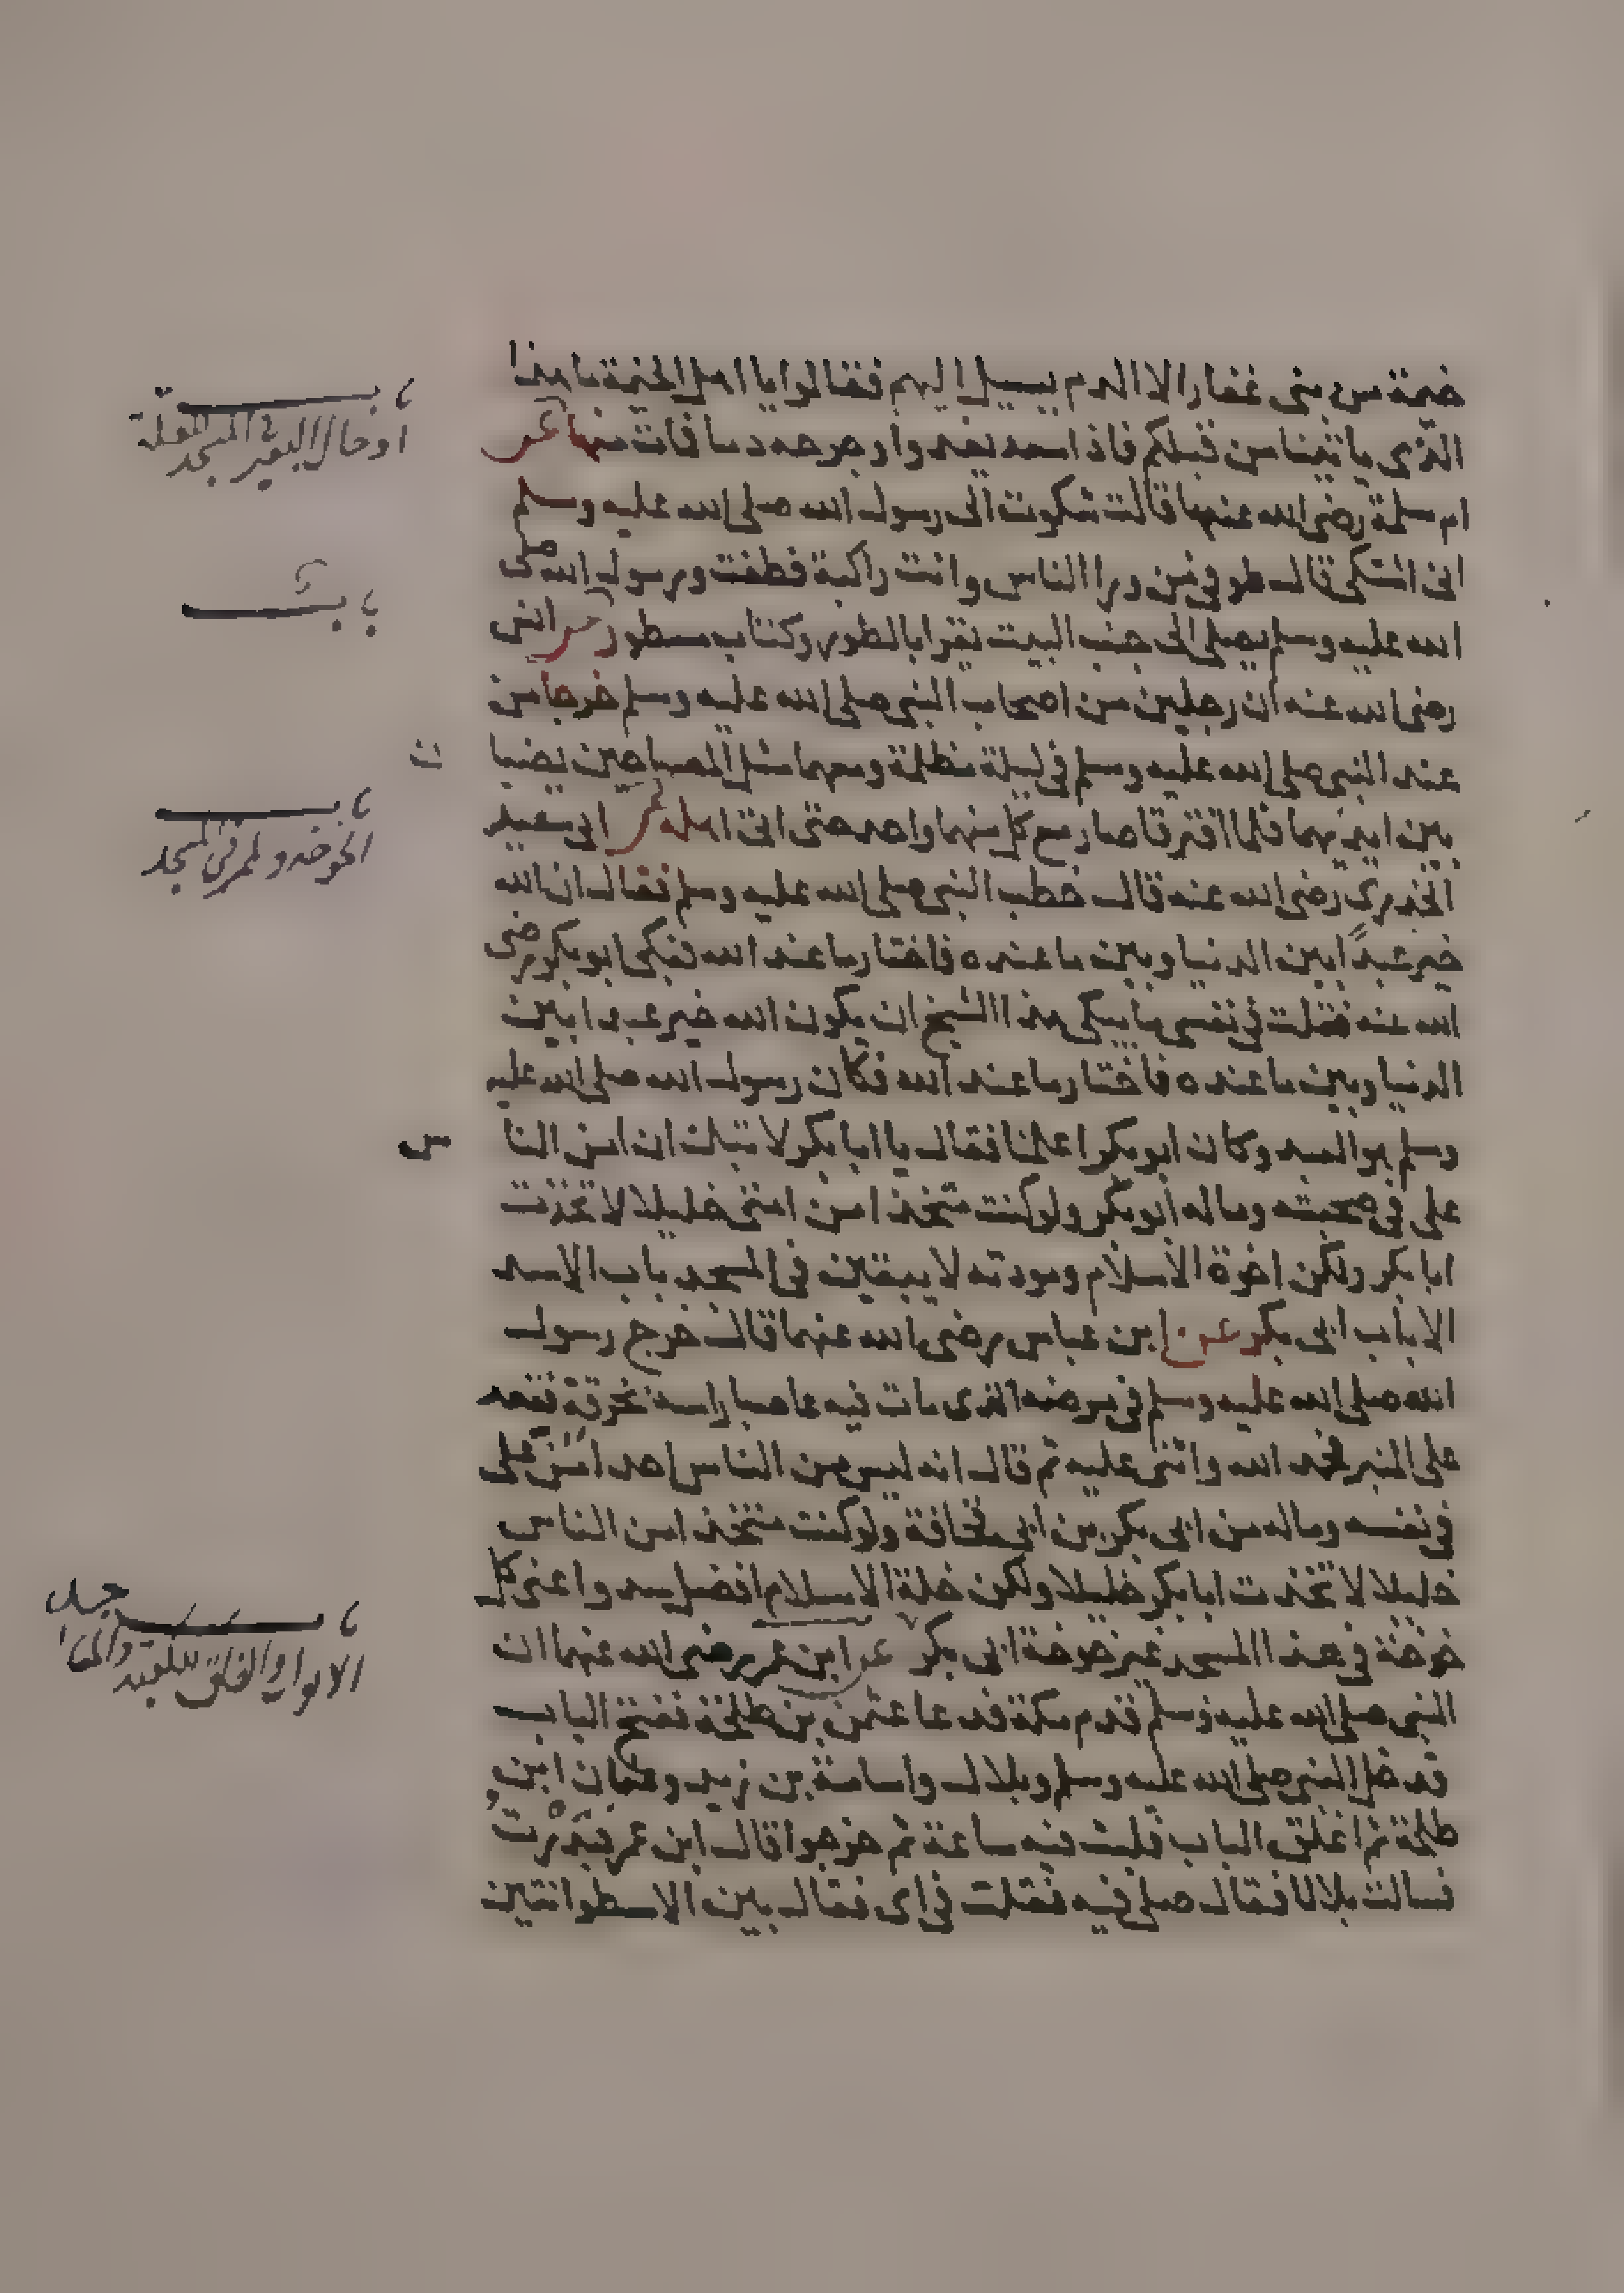 خيمة من بنى غفار الا الدم يسيل اليهم فقالوا يا اهل الخيمة ما هذا
الذى ياتينا من قبلكم فاذا سعد يغدوا وجرحه دما فات منها عن
ام سلمة رضى الله عنها قالت شكوت الى رسول الله صلى الله عليه وسلم
انى اشتكى قال طوفى من ورا الناس وانت راكبة فطفت ورسول الله صلى
الله عليه وسلم يصلى الى جنب البيت يقرا بالطور وكتاب مسطور عن انس
رضى الله عنه ان رجلين من اصحاب النبى صلى الله عليه وسلم خرجا من
عند النبى صلى الله عليه وسلم فى ليلة مظلمة ومعهما مثل المصباحين يضيا
بين ايديهما فلما افترقا صار مع كل منهما واحد حتى اتى اهله عن ابى سعيد
الخدرى رضى الله عنه قال خطب النبى صلى الله عليه وسلم فقال ان الله
خير عبدا بين الدنيا وبين ما عنده فاختار ما عند الله فبكى ابو بكر رضى
الله عنه فقلت فى نفسى ما يبكى هذا الشيخ ان يكون الله خير عبدا بين
الدنيا وبين ما عنده فاختار ما عند الله فكان رسول الله صلى الله عليه
وسلم هو العبد وكان ابو بكر اعلمنا فقال يا ابا بكر لا تبك ان امن النا
س
على فى صحبته وماله ابو بكر ولو كنت متخذا من امتى خليلا لاتخذت
ابا بكر ولكن اخوة الاسلام ومودته لا يبقين فى المسجد باب الا سد
الا باب ابى بكر عن ابن عباس رضى الله عنهما قال خرج رسول
الله صلى الله عليه وسلم فى مرضه الذى مات فيه عاصبا راسه بخرقة فقعد
على المنبر فحمد الله واثنى عليه ثم قال انه ليس من الناس احد امن على
فى نفسه وماله من ابى بكر بن ابى قحافة ولو كنت متخذا من الناس
خليلا لاتخذت ابا بكر خليلا ولكن خلة الاسلام افضل سدوا عنى كل
خوخة فى هذا المسجد غير خوخة ابى بكر عن ابن عمر رضى الله عنهما ان
النبى صلى الله عليه وسلم قدم مكة فدعا عثمن بن طلحة ففتح الباب
فدخل النبى صلى الله عليه وسلم وبلال واسامة بن زيد وعثمان ابن
طلحة ثم اغلق الباب فلبث فيه ساعة ثم خرجوا قال ابن عمر فبدرت
فسالت بلالا فقال صلى فيه فقلت فى اى فقال بين الاسطوانتين
باب
ادخال البعير فى المسجد للعلة
باب
باب
الخوخة والممر فى المسجد
باب
الابواب والغلق للكعبة والمساجد